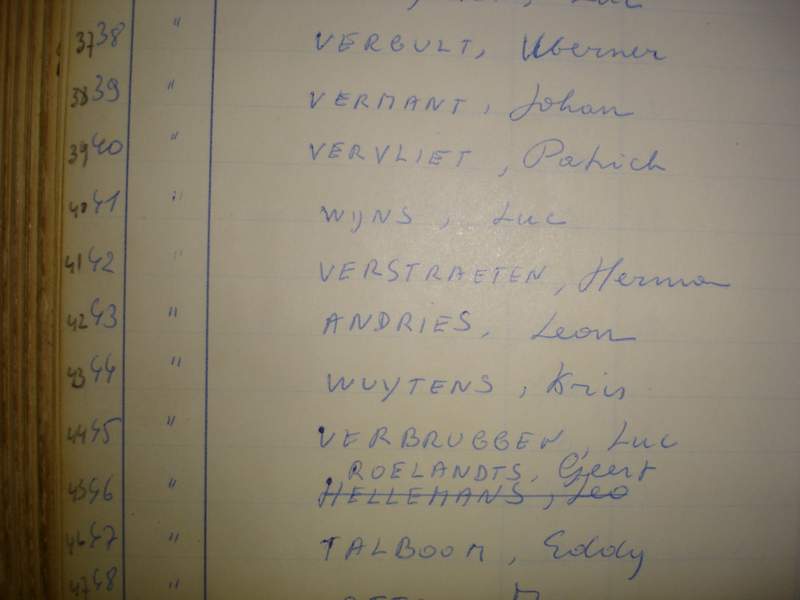 Luc
37 38 " VERBULT, Werner
38 39 " VERMANT, Johan
39 40 " VERVLIET, Patrick
40 41 " WIJNS, Luc
41 42 " VERSTRAETEN, Herman
42 43 " ANDRIES, Leon
43 44 " WUYTENS, Kris
44 45 " VERBRUGGEN, Luc
ROELANDTS, Geert
45 46 " HELLEMANS, Leo
46 47 " TALBOOM, Eddy
47 48 "